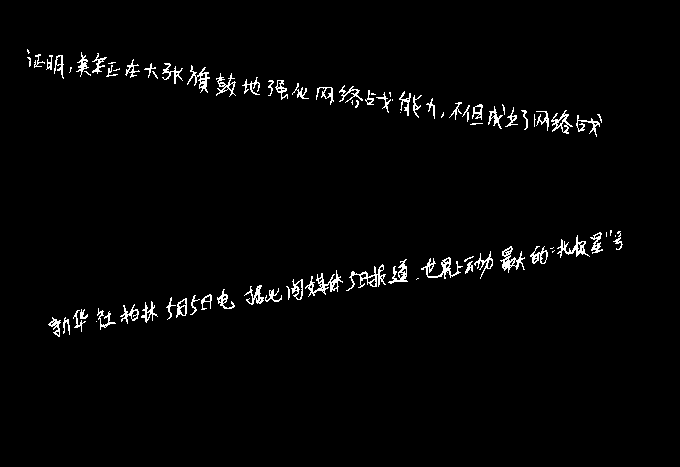 证明,美军正在大张旗鼓地强化网络战能力,不但成立了网络战
新华社柏林5月5日电 据此间媒体5日报道,世界上动力最大的“北极星”号